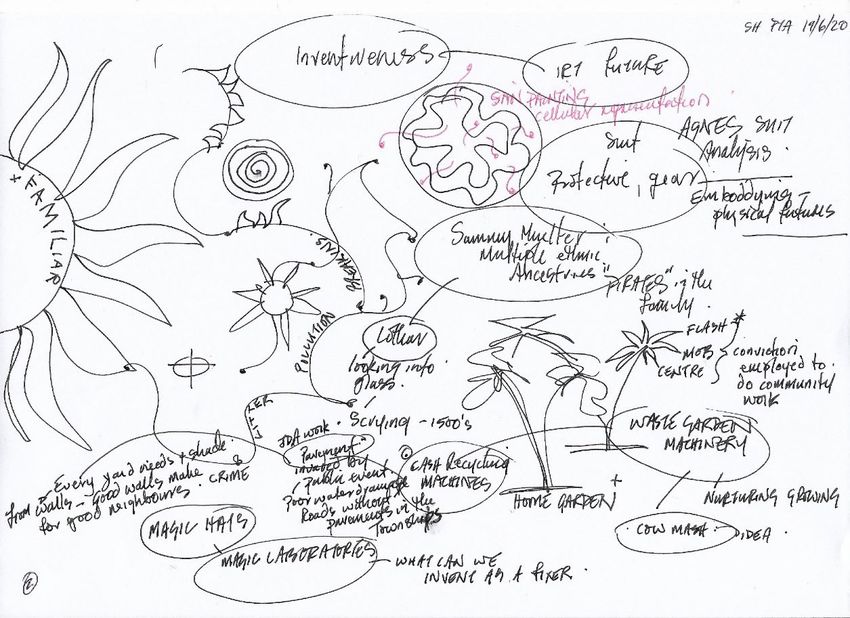 SH PIA 19/6/20
Inventiveness
IRT FUTURE
cellular representation
AGNES SUIT
Analysis.
Suit
Protective, gear
Embodying -
physical futures
+ FAMILIAR
Multiple ethnic
Ancestries
"PIRATES" in the
family.
BREAKINS.
POLLUTION
LITTER
& CRIME
looking into
glass.
Scrying - 1500's
FLASH *
MOB
CENTRE
conviction
employed to
do community
work
WASTE GARDEN
MACHINERY
NURTURING GROWING
COW MASH.
IDEA.
HOME GARDEN
+
JDA work.
Pavement
invaded by
public event.
Poor water drainage
Roads without
pavements in the
Townships
CASH Recycling
MACHINES
Every yard needs + shade
from walls - good walls make
for good neighbours.
MAGIC HATS
MAGIC LABORATORIES
- WHAT CAN WE
INVENT AS A FIXER.
2